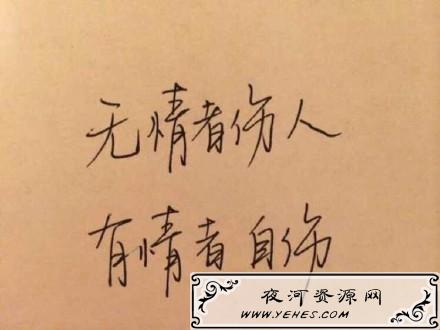 无情者伤人
有情者自伤
夜河资源网
WWW.YEHES.COM